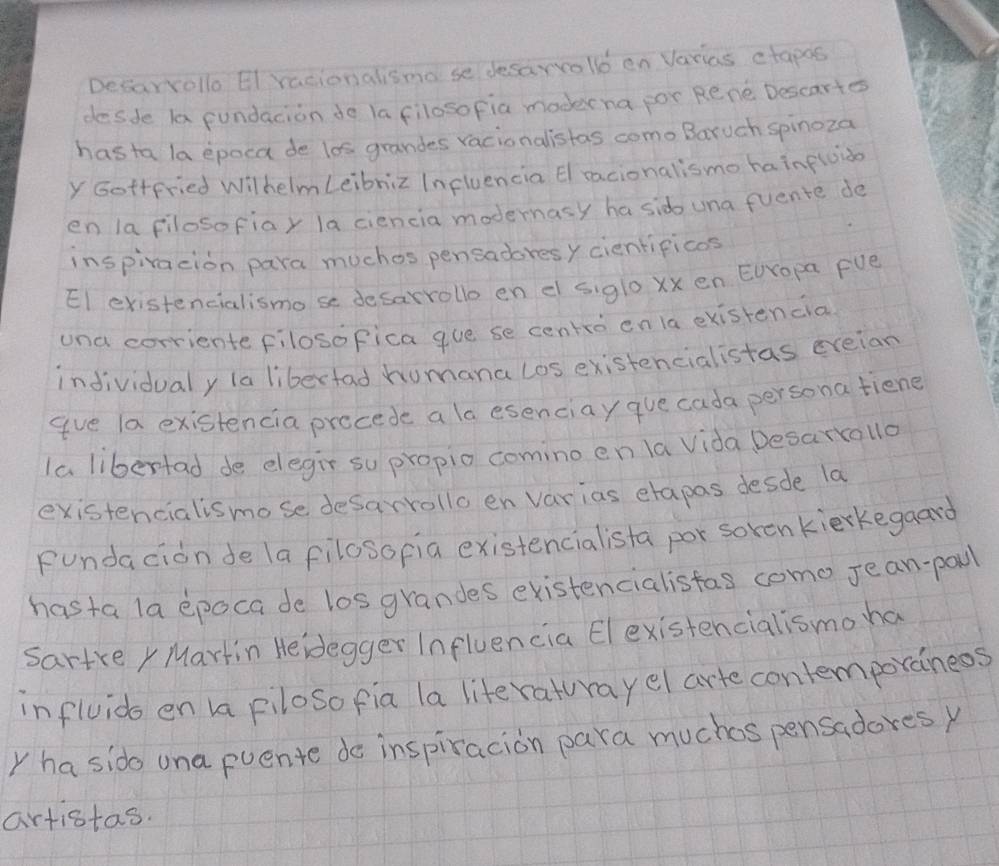 Desarrollo El racionalismo se desarrolló en Varias etapas
desde la fundación de la filosofia moderna por René Descartes
hasta la época de los grandes racionalistas como Baruch spinoza
y Gottfried Wilhelm Leibniz Influencia El racionalismo ha influido
en la filosofia y la ciencia modernas y ha sido una fuente de
inspiración para muchos pensadores y cientificos
El existencialismo se desarrollo en el siglo xx en Europa fue
una corriente filosófica que se centró en la existencia
individual y la libertad humana Los existencialistas creian
que la existencia precede a la esencia y que cada persona tiene
la libertad de elegir su propio comino en la vida Desarrollo
existencialismo se desarrollo en varias etapas desde la
fundación de la filosofia existencialista por soren Kierkegaard
hasta la época de los grandes existencialistas como Jean-paul
Sartre y Martin Heidegger Influencia El existencialismo ha
influido en la filosofia la literatura y el arte contemporáneos
y ha sido una fuente de inspiración para muchos pensadores y
artistas.